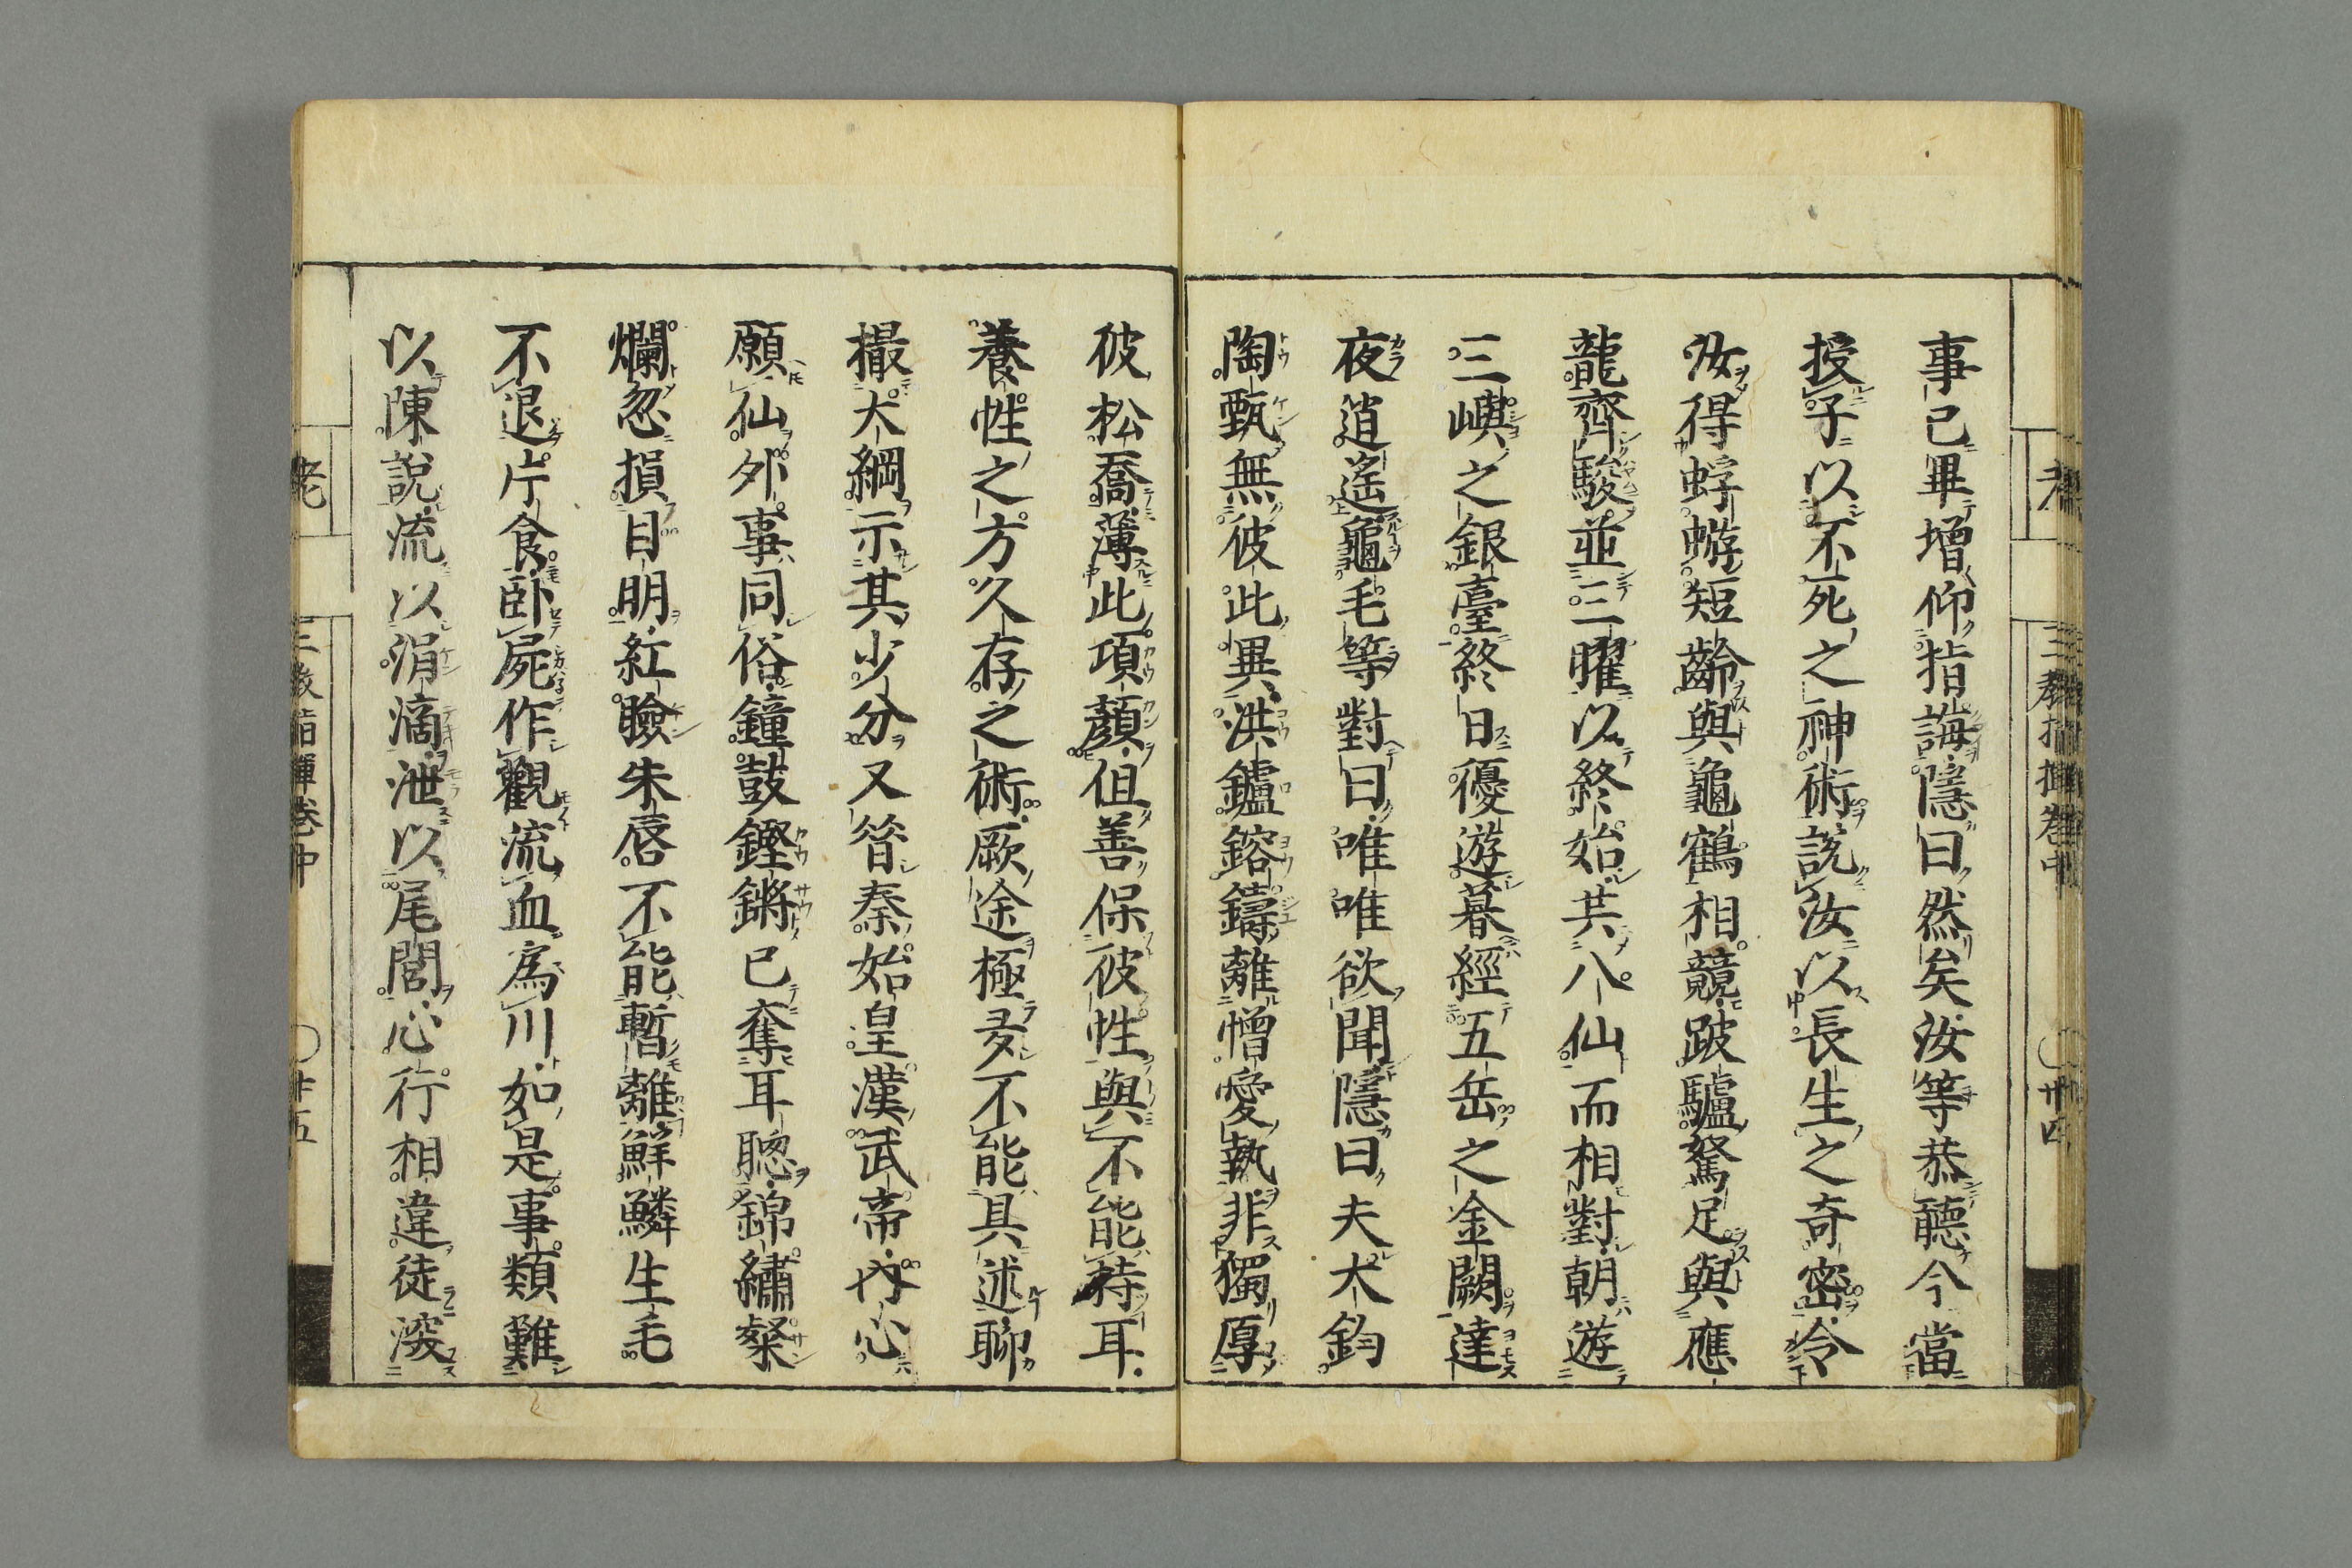 事已畢增仰指誨隱曰然矣汝等恭聽今當
授子以不死之神術說汝以長生之奇密令
汝得蜉蝣短齡與龜鶴相競跛驢駑足與應
龍齊駿並三曜以終始共八仙而相對朝遊
三嶼之銀臺終日優遊暮經五岳之金闕達
夜逍遙龜毛等對曰唯唯欲聞隱曰夫大鈞
陶甄無彼此異洪鑪鎔鑄離憎愛執非獨厚
彼松喬薄此項顏但善保彼性與不能持耳
養性之方久存之術厥途極多不能具述聊
撮大綱示其少分又昔秦始皇漢武帝內心
願仙外事同俗鐘鼓鏗鏘已奪耳聰錦繡粲
爛忽損目明紅瞼朱唇不能暫離鮮鱗生毛
不退片食臥屍作觀流血為川如是事類難
以陳說流以涓滴泄以尾閭心行相違徒深
三教指歸卷中
廿四
三教指歸卷中
廿五